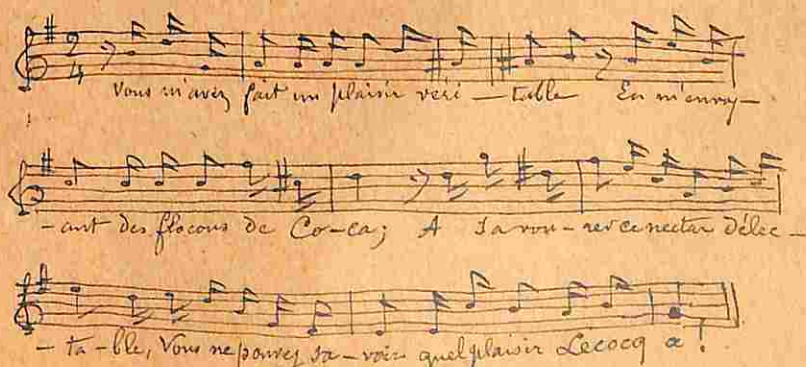 2 4
Vous m'avez fait un plaisir véri — table En m'envoy—
— ant des flocons de Co-ca; A sa vou-rer ce nectar délec —
— ta — ble, Vous ne pouvez sa — voir quel plaisir Lecocq a !